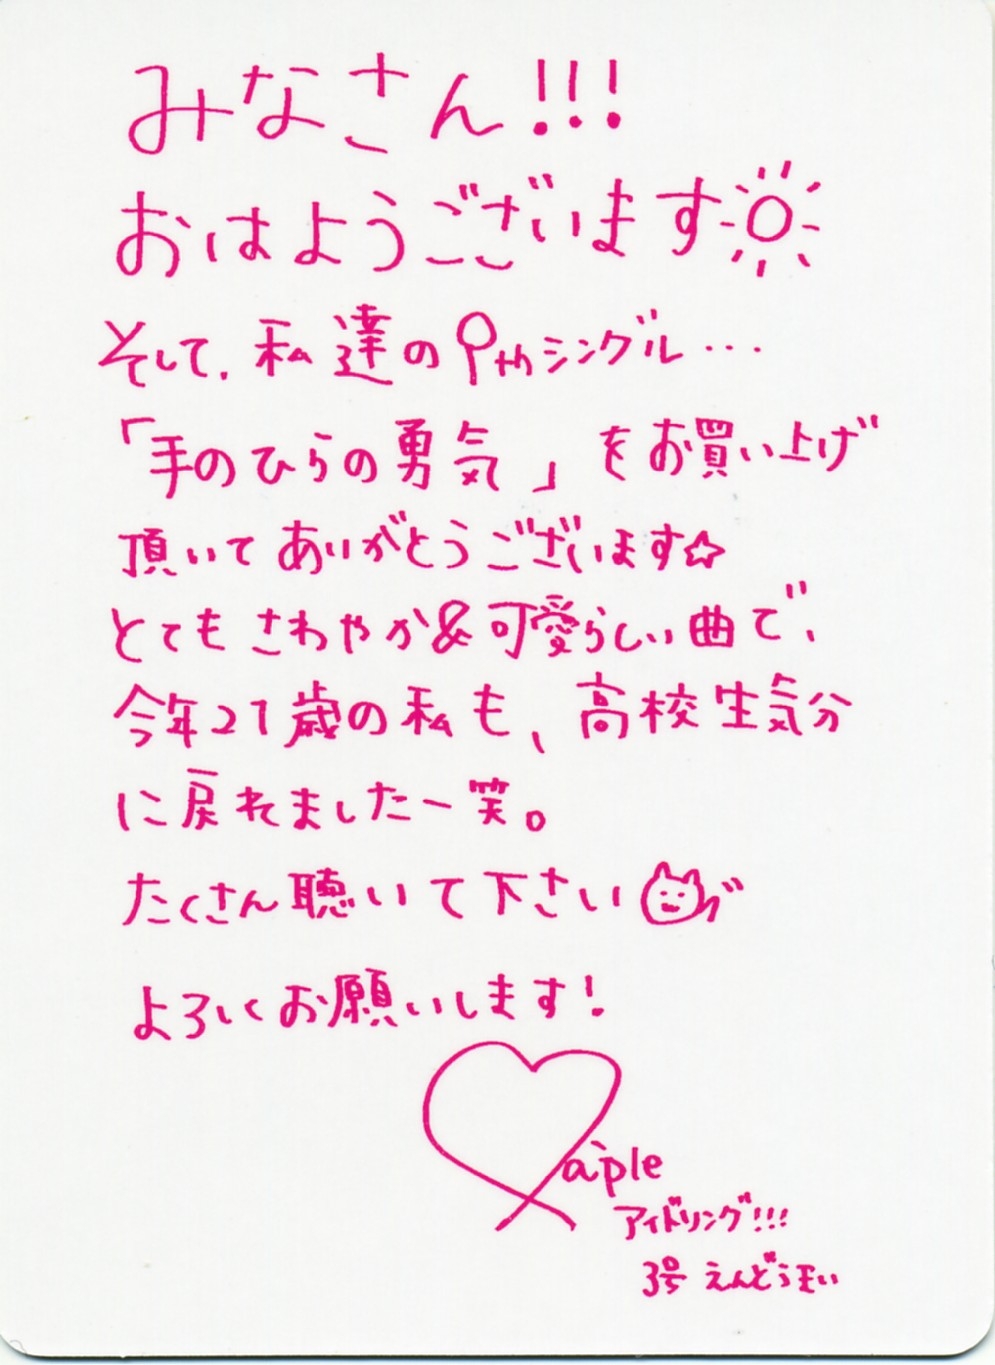 みなさん!!!
おはようございます
そして、私達の9thシングル…
「手のひらの勇気」をお買い上げ
頂いてありがとうございます☆
とてもさわやか&可愛らしい曲で、
今年21歳の私も、高校生気分
に戻れましたー笑。
たくさん聴いて下さい
よろしくお願いします!
aple
アイドリング!!!
3号 えんどうまい